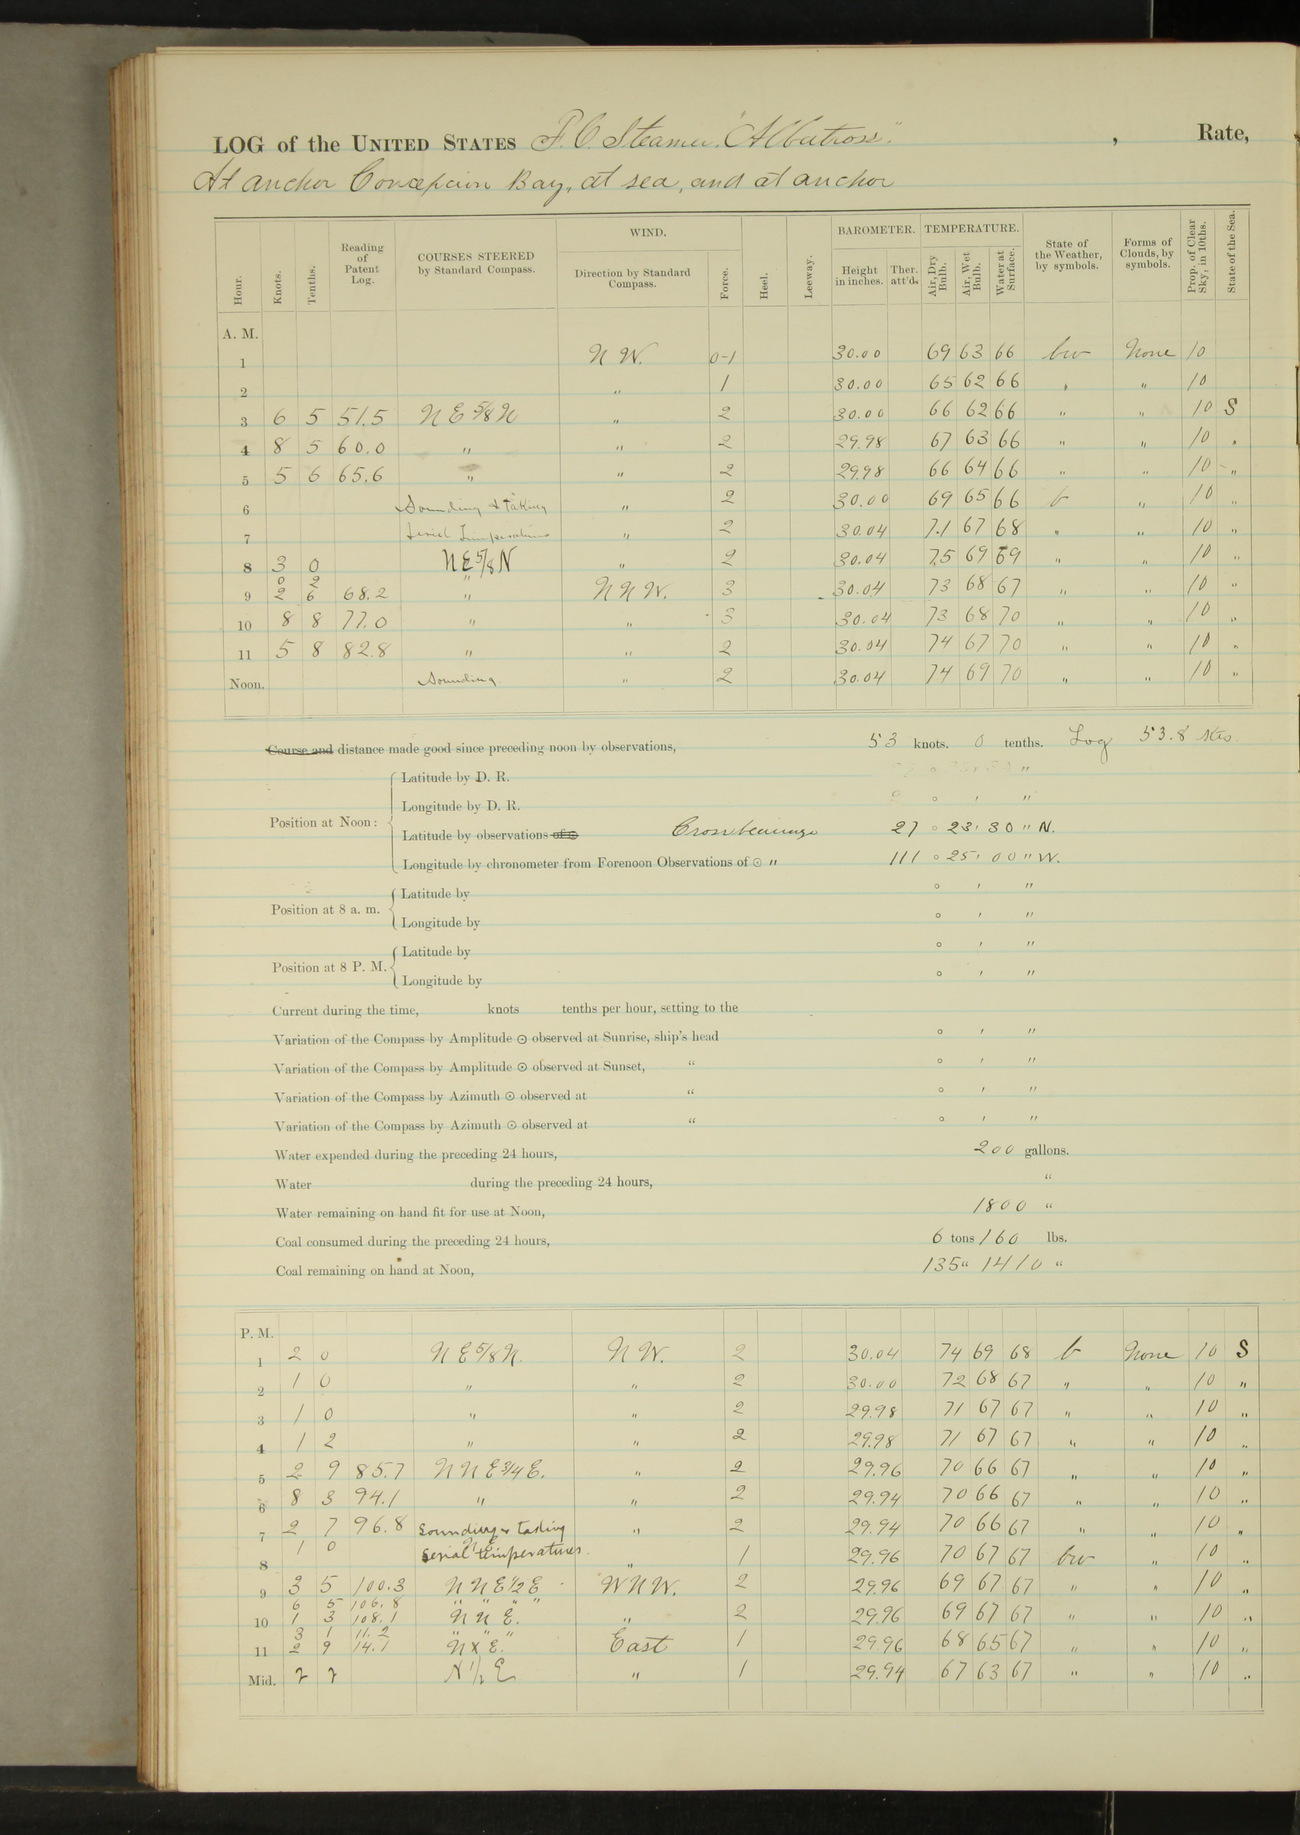 LOG of the UNITED STATES F. C. Steamer "Albatross", Rate,
At anchor Concepcion Bay, at sea, and at anchor
Hour. Knots. Tenths. Reading of Patent Log. COURSES STEERED by Standard Compass. WIND. Direction by Standard Compass. Force. Heel. Leeway. BAROMETER. Height in inches. Ther. att'd. TEMPERATURE. Air, Dry Bulb. Air, Wet Bulb. Water at Surface. State of the Weather, by symbols. Forms of Clouds, by symbols. Prop. of Clear Sky, in 10ths. State of the Sea.
A. M.
1 N W. 0-1 30.00 69 63 66 bw None 10
2 " 1 30.00 65 62 66 " " 10
3 6 5 51.5 N E 5/8 N " 2 30.00 66 62 66 " " 10 S
4 8 5 60.0 " " 2 29.98 67 63 66 " " 10 "
5 5 6 65.6 " " 2 29.98 66 64 66 " " 10 "
6 Sounding & taking " 2 30.00 69 65 66 b " 10 "
7 Serial Temperatures " 2 30.04 71 67 68 " " 10 "
8 3 0 N E 5/8 N " 2 30.04 75 69 69 " " 10 "
0 2 "
9 2 6 68.2 " N N W. 3 30.04 73 68 67 " " 10 "
10 8 8 77.0 " " 3 30.04 73 68 70 " " 10 "
11 5 8 82.8 " " 2 30.04 74 67 70 " " 10 "
Noon. Sounding " 2 30.04 74 69 70 " " 10 "
Course and distance made good since preceding noon by observations, 53 knots. 0 tenths. Log 53.8 kts.
Position at Noon:
Latitude by D. R. ° ' "
Longitude by D. R. ° ' "
Latitude by observations of ☉ Cross bearings 27 ° 23 ' 30 " N.
Longitude by chronometer from Forenoon Observations of ☉ " 111 ° 25 ' 00 " W.
Position at 8 a. m.
Latitude by ° ' "
Longitude by ° ' "
Position at 8 P. M.
Latitude by ° ' "
Longitude by ° ' "
Current during the time, knots tenths per hour, setting to the
Variation of the Compass by Amplitude ☉ observed at Sunrise, ship's head ° ' "
Variation of the Compass by Amplitude ☉ observed at Sunset, " ° ' "
Variation of the Compass by Azimuth ☉ observed at " ° ' "
Variation of the Compass by Azimuth ☉ observed at " ° ' "
Water expended during the preceding 24 hours, 200 gallons.
Water during the preceding 24 hours, "
Water remaining on hand fit for use at Noon, 1800 "
Coal consumed during the preceding 24 hours, 6 tons 160 lbs.
Coal remaining on hand at Noon, 135 " 1410 "
P. M.
1 2 0 N E 5/8 N. N W. 2 30.04 74 69 68 b None 10 S
2 1 0 " " 2 30.00 72 68 67 " " 10 "
3 1 0 " " 2 29.98 71 67 67 " " 10 "
4 1 2 " " 2 29.98 71 67 67 " " 10 "
5 2 9 85.7 N N E 3/4 E. " 2 29.96 70 66 67 " " 10 "
6 8 3 94.1 " " 2 29.94 70 66 67 " " 10 "
7 2 7 96.8 Sounding & taking " 2 29.94 70 66 67 " " 10 "
8 1 0 Serial temperatures. " 1 29.96 70 67 67 bw " 10 "
9 3 5 100.3 N N E 1/2 E W N W. 2 29.96 69 67 67 " " 10 "
6 5 106.8 " " " "
10 1 3 108.1 N N E. " 2 29.96 69 67 67 " " 10 "
3 1 11.2 " " "
11 2 9 14.1 N x E. East 1 29.96 68 65 67 " " 10 "
Mid. 2 2 N 1/2 E " 1 29.94 67 63 67 " " 10 "